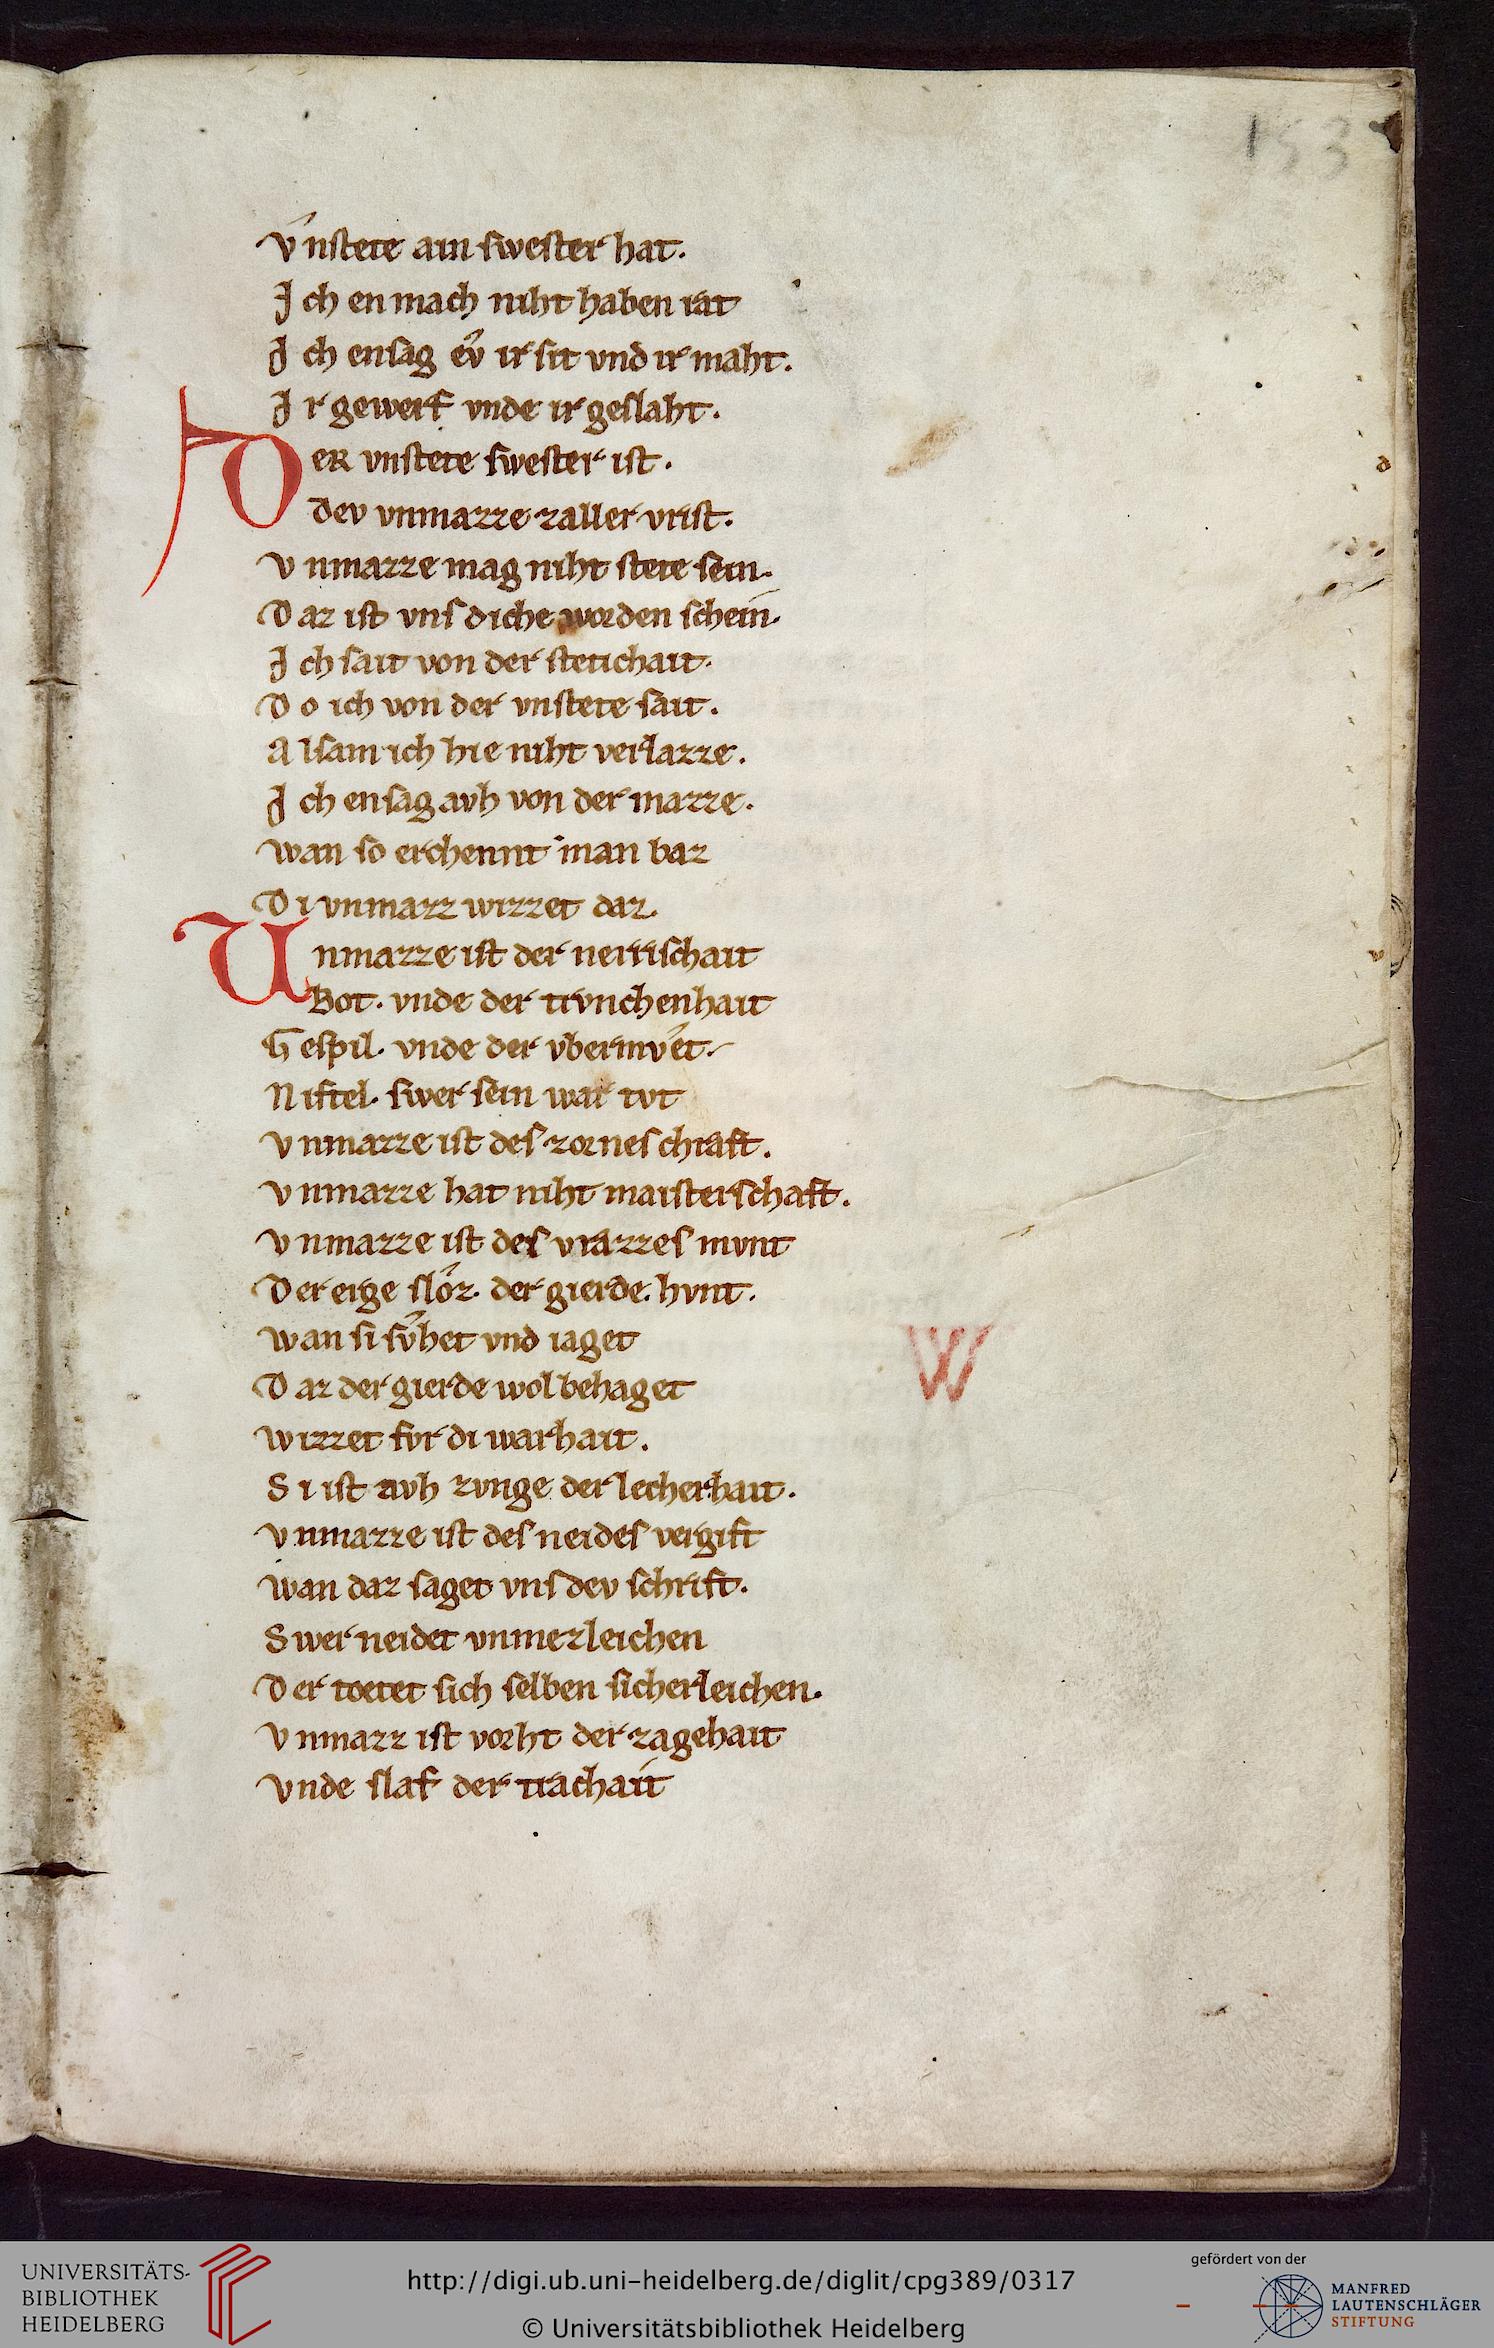 153
Vnſtete ain ſweſter hat.
Ich en mach niht haben rat
Ich enſag ev̂ ir ſit vnd ir maht.
Ir gewerf vnde ir geſlaht.
DeR vnſtete ſweſter iſt.
dev vnmazze zaller vriſt.
Vnmazze mag niht ſtete ſein.
Daz iſt vnſ diche worden ſchein.
Ich ſait von der ſtetichait.
Do ich von der vnſtete ſait.
Alſam ich hie niht verlazze.
Ich enſag avh von der mazze.
wan ſo erchennt man baz
Di vnmazz wizzet daz.
Unmazze iſt der nerriſchait
Bot. vnde der trvnchenhait
Geſpil. vnde der vbermvͤt.
Niftel. ſwer ſein war tvt
Vnmazze iſt deſ zorneſ chraft.
Vnmazze hat niht maiſterſchaft.
Vnmazze iſt deſ vrazzeſ mvnt
Der erge ſloͮz. der gierde. hvnt.
wan ſi ſvͤhet vnd iaget
Daz der gierde wol behaget
wizzet fvr di warhait.
Si iſt avh zvnge der lecherhait.
Vnmazze iſt deſ neideſ vergift
wan daz ſaget vnſ dev ſchrift.
Swer neidet vnmezleichen
Der toetet ſich ſelben ſicherleichen.
Vnmazz iſt vorht der zagehait
Vnde ſlaf der trachait
W
UNIVERSITÄTS-
BIBLIOTHEK
HEIDELBERG
http://digi.ub.uni-heidelberg.de/diglit/cpg389/0317
© Universitätsbibliothek Heidelberg
gefördert von der
MANFRED
LAUTENSCHLÄGER
STIFTUNG